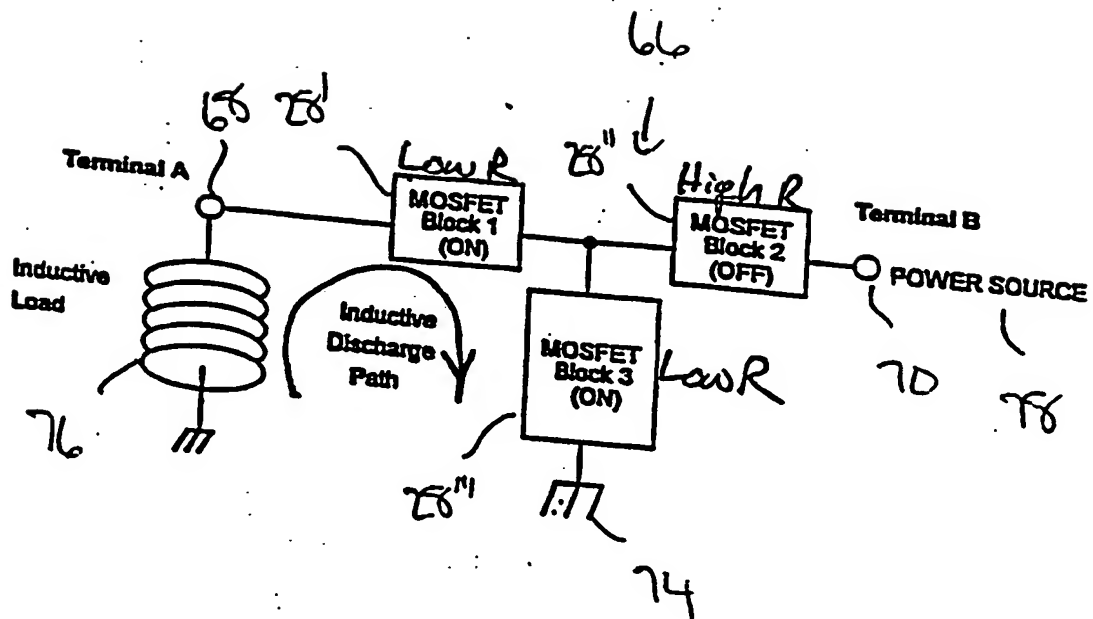 66
68 28'
Terminal A
Low R
28"
High R
MOSFET
Block 1
(ON)
MOSFET
Block 2
(OFF)
Terminal B
POWER SOURCE
Inductive
Load
Inductive
Discharge
Path
MOSFET
Block 3
(ON)
Low R
70
78
76
28'"
74